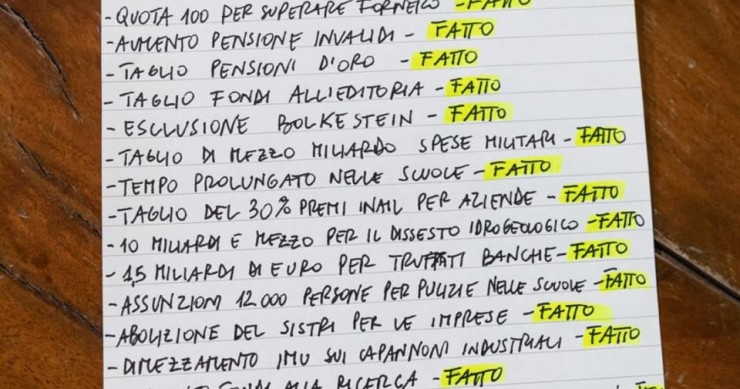 - QUOTA 100 PER SUPERARE FORNERO - FATTO
- AUMENTO PENSIONE INVALIDI - FATTO
- TAGLIO PENSIONI D'ORO - FATTO
- TAGLIO FONDI ALL'EDITORIA - FATTO
- ESCLUSIONE BOLKESTEIN - FATTO
- TAGLIO DI MEZZO MILIARDO SPESE MILITARI - FATTO
- TEMPO PROLUNGATO NELLE SCUOLE - FATTO
- TAGLIO DEL 30% PREMI INAIL PER AZIENDE - FATTO
- 10 MILIARDI E MEZZO PER IL DISSESTO IDROGEOLOGICO - FATTO
- 1,5 MILIARDI DI EURO PER TRUFFATI BANCHE - FATTO
- ASSUNZIONI 12000 PERSONE PER PULIZIE NELLE SCUOLE - FATTO
- ABOLIZIONE DEL SISTRI PER LE IMPRESE - FATTO
- DIMEZZAMENTO IMU SUI CAPANNONI INDUSTRIALI - FATTO
FONDI ALLA RICERCA - FATTO